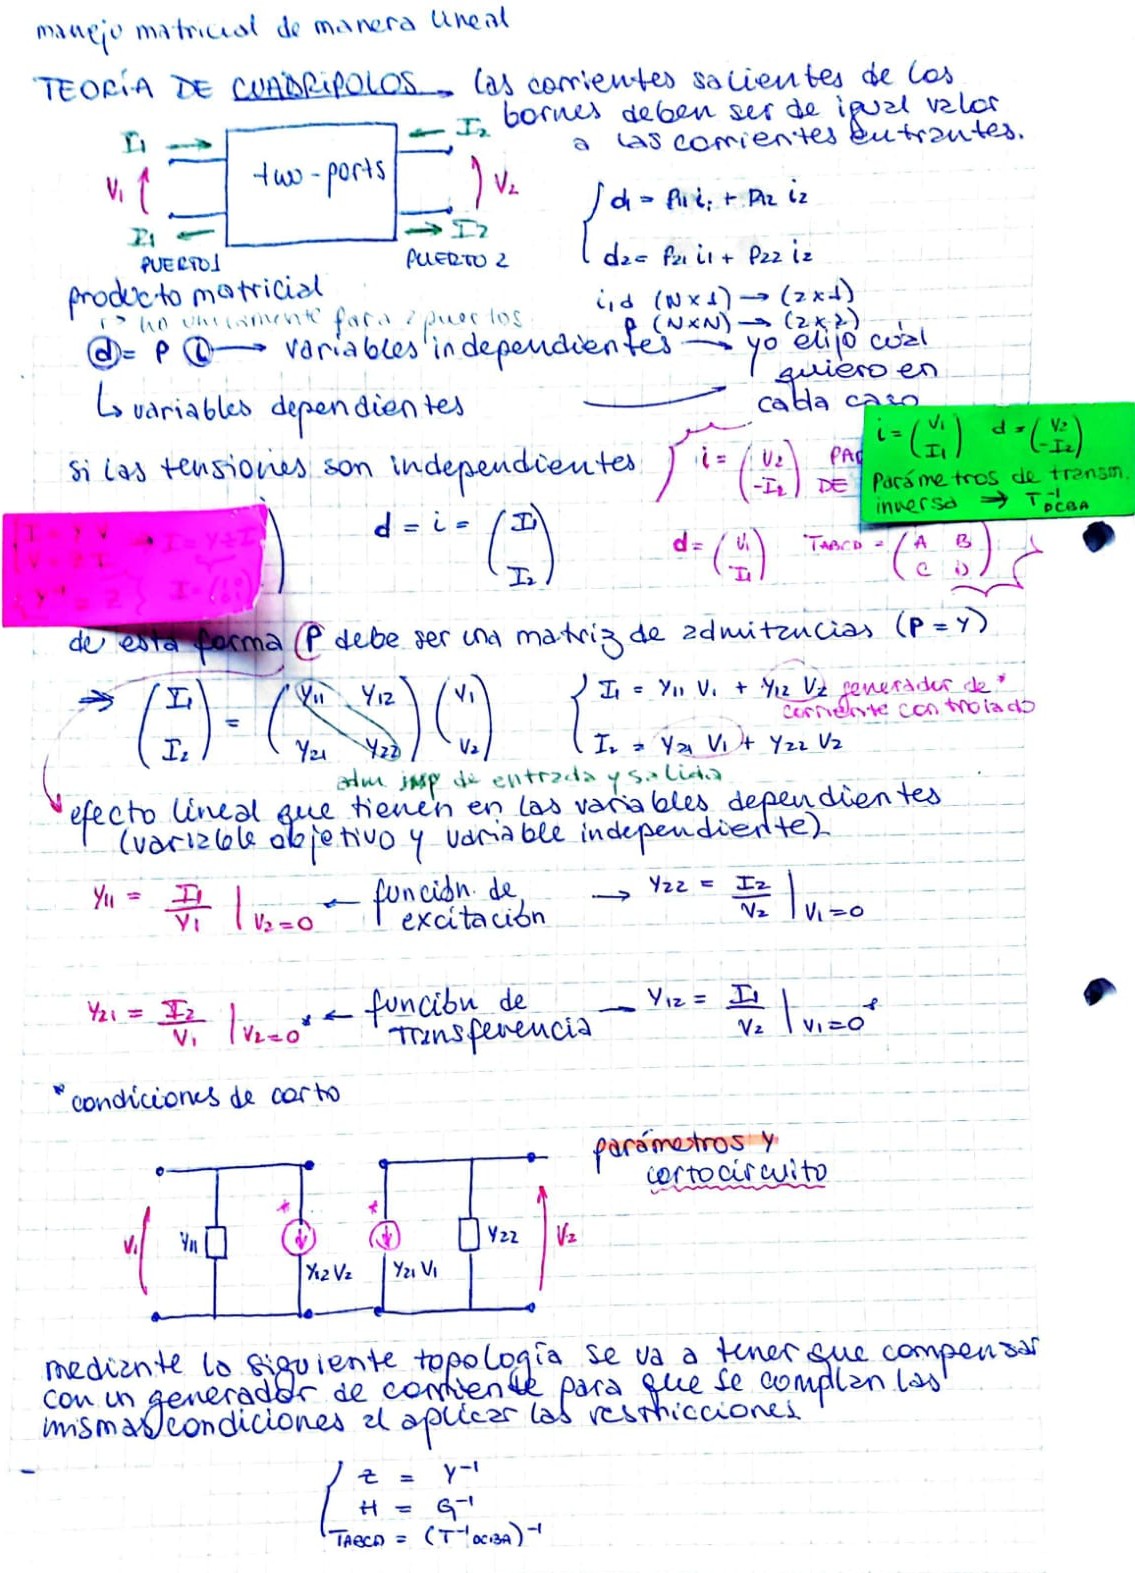 manejo matricial de manera lineal
TEORÍA DE CUADRIPOLOS → las corrientes salientes de los
bornes deben ser de igual valor
a las corrientes entrantes.
I1 → ← I2
V1 two-ports V2
I1 ← → I2
PUERTO 1 PUERTO 2
d1 = P11 i1 + P12 i2
d2 = P21 i1 + P22 i2
producto matricial
i,d (N×1) → (2×1)
↳ no unicamente para 2 puertos
P (N×N) → (2×2)
d = P i → variables independientes → yo elijo cuál
quiero en
cada caso
↳ variables dependientes
i = (V1 I1) d = (V2 -I2)
Parámetros de transm.
inversa ⇒ T⁻¹DCBA
si las tensiones son independientes
i = (V2 -I2) PAR
DE
d = i = (I1 I2)
d = (V1 I1) TABCD = (A B C D)
I = Y V → I = Y Z I
V = Z I
Y⁻¹ = Z
de esta forma P debe ser una matriz de admitancias (P = Y)
⇒ (I1 I2) = (Y11 Y12 Y21 Y22) (V1 V2)
I1 = Y11 V1 + Y12 V2 generador de *
corriente controlado
I2 = Y21 V1 + Y22 V2
adm imp de entrada y salida
efecto lineal que tienen en las variables dependientes
(variable objetivo y variable independiente)
Y11 = I1/V1 | V2=0 ← función de excitación → Y22 = I2/V2 | V1=0
Y21 = I2/V1 | V2=0* ← función de transferencia → Y12 = I1/V2 | V1=0*
*condiciones de corto
parámetros Y
cortocircuito
V1 Y11 * Y12 V2 * Y21 V1 Y22 V2
mediante la siguiente topología se va a tener que compensar
con un generador de corriente para que se complan las
mismas condiciones al aplicar las restricciones
Z = Y⁻¹
H = G⁻¹
TABCD = (T⁻¹DCBA)⁻¹